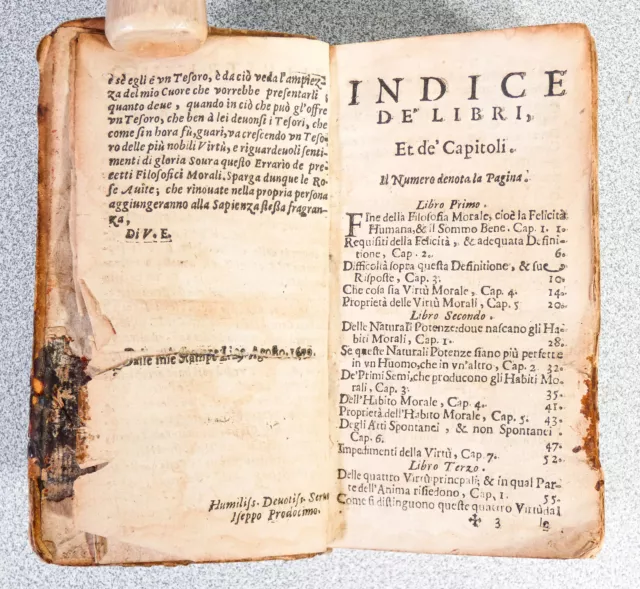 è sè egli è vn Tesoro, è da ciò veda l'ampiez-
za del mio Cuore che vorrebbe presentarli,
quanto deue, quando in ciò che può gl'offre
vn Tesoro, che ben à lei deuonsi i Tesori, che
come sin hora fù, guari, va crescendo vn Teso-
ro delle più nobili Virtù, e riguardeuoli senti-
menti di gloria Soura questo Errario de pre-
cetti Filosofici Morali. Sparga dunque le Ro-
se Auite; che rinouate nella propria persona
aggiungeranno alla Sapienza stessa fragran-
za,
Di V. E.
Dalle mie Stampe li Agosto.
Humiliss. Deuotiss. Seru
Iseppo Prodocimo.
INDICE
DE' LIBRI,
Et de' Capitoli.
Il Numero denota la Pagina.
Libro Primo.
FIne della Filosofia Morale, cioè la Felicità
Humana, & il Sommo Bene. Cap. 1. 1.
Requisiti della Felicità, & adequata Defini-
tione, Cap. 2. 6.
Difficoltà sopra questa Definitione, & sue
Risposte, Cap. 3. 10.
Che cosa sia Virtù Morale, Cap. 4. 14.
Proprietà delle Virtù Morali, Cap. 5 20.
Libro Secondo.
Delle Naturali Potenze: doue nascano gli Ha-
biti Morali, Cap. 1. 28.
Se queste Naturali Potenze siano più perfette
in vn Huomo, che in vn'altro, Cap. 2 32.
De' Primi Semi, che producono gli Habiti Mo-
rali, Cap. 3. 35.
Dell'Habito Morale, Cap. 4. 41.
Proprietà dell'Habito Morale, Cap. 5. 43.
Degli Atti Spontanei, & non Spontanei
Cap. 6. 47.
Impedimenti della Virtù, Cap. 7. 52.
Libro Terzo.
Delle quattro Virtù principali; & in qual Par-
te dell'Anima risiedono, Cap. 1. 55.
Come si distinguono queste quattro Virtù dal
✠ 3 le